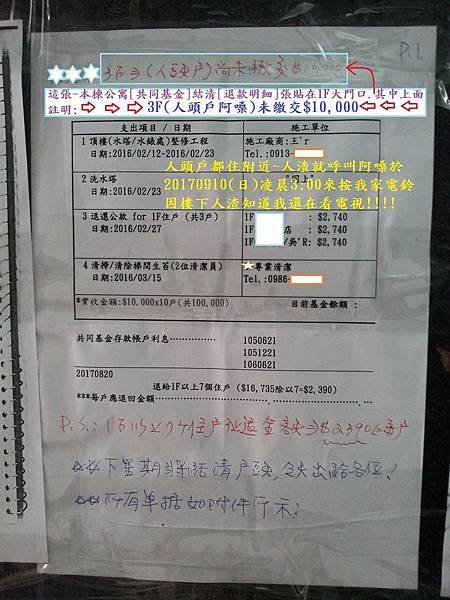 P.1.
★★★3F⇒(人頭戶)尚未繳交$10,000
這張~本棟公寓[共同基金]結清[退款明細]張貼在1F大門口.其中上面
註明:⇨ ⇨ ⇨ 3F(人頭戶阿嗓)未繳交$10,000⇦ ⇦ ⇦
支出項目 / 日期 施工單位
1 頂樓(水塔/水錶處)整修工程 施工廠商:王'r
日期:2016/02/12-2016/02/23 Tel.:0913-
人頭戶都住附近~人渣就呼叫阿嗓於
2 洗水塔 "同上"
日期:2016/02/23
20170910(日)凌晨3:00來按我家電鈴
因樓下人渣知道我還在看電視!!!!
3 退還公款 for 1F住戶 (共3戶) 1F : $2,740
日期:2016/02/27 1F 店 : $2,740
1F /吳'R: $2,740
4 清掃/清除梯間生苔(2位清潔員) ★專業清潔
日期:2016/03/15 Tel.:0986-
*實收金額:$10,000x10戶(共100,000) 目前基金餘額 :
共同基金存款帳戶利息…………… 1050621
1051221
1060621
20170820
退給1F以上7個住戶 ($16,735除以7=$2,390)
***每戶應退回金額
P.S.: 1F以上7个住戶 退金額⇒$2,390/每戶
☆☆下星期 結清戶頭,
☆☆所有单据如附件所示!